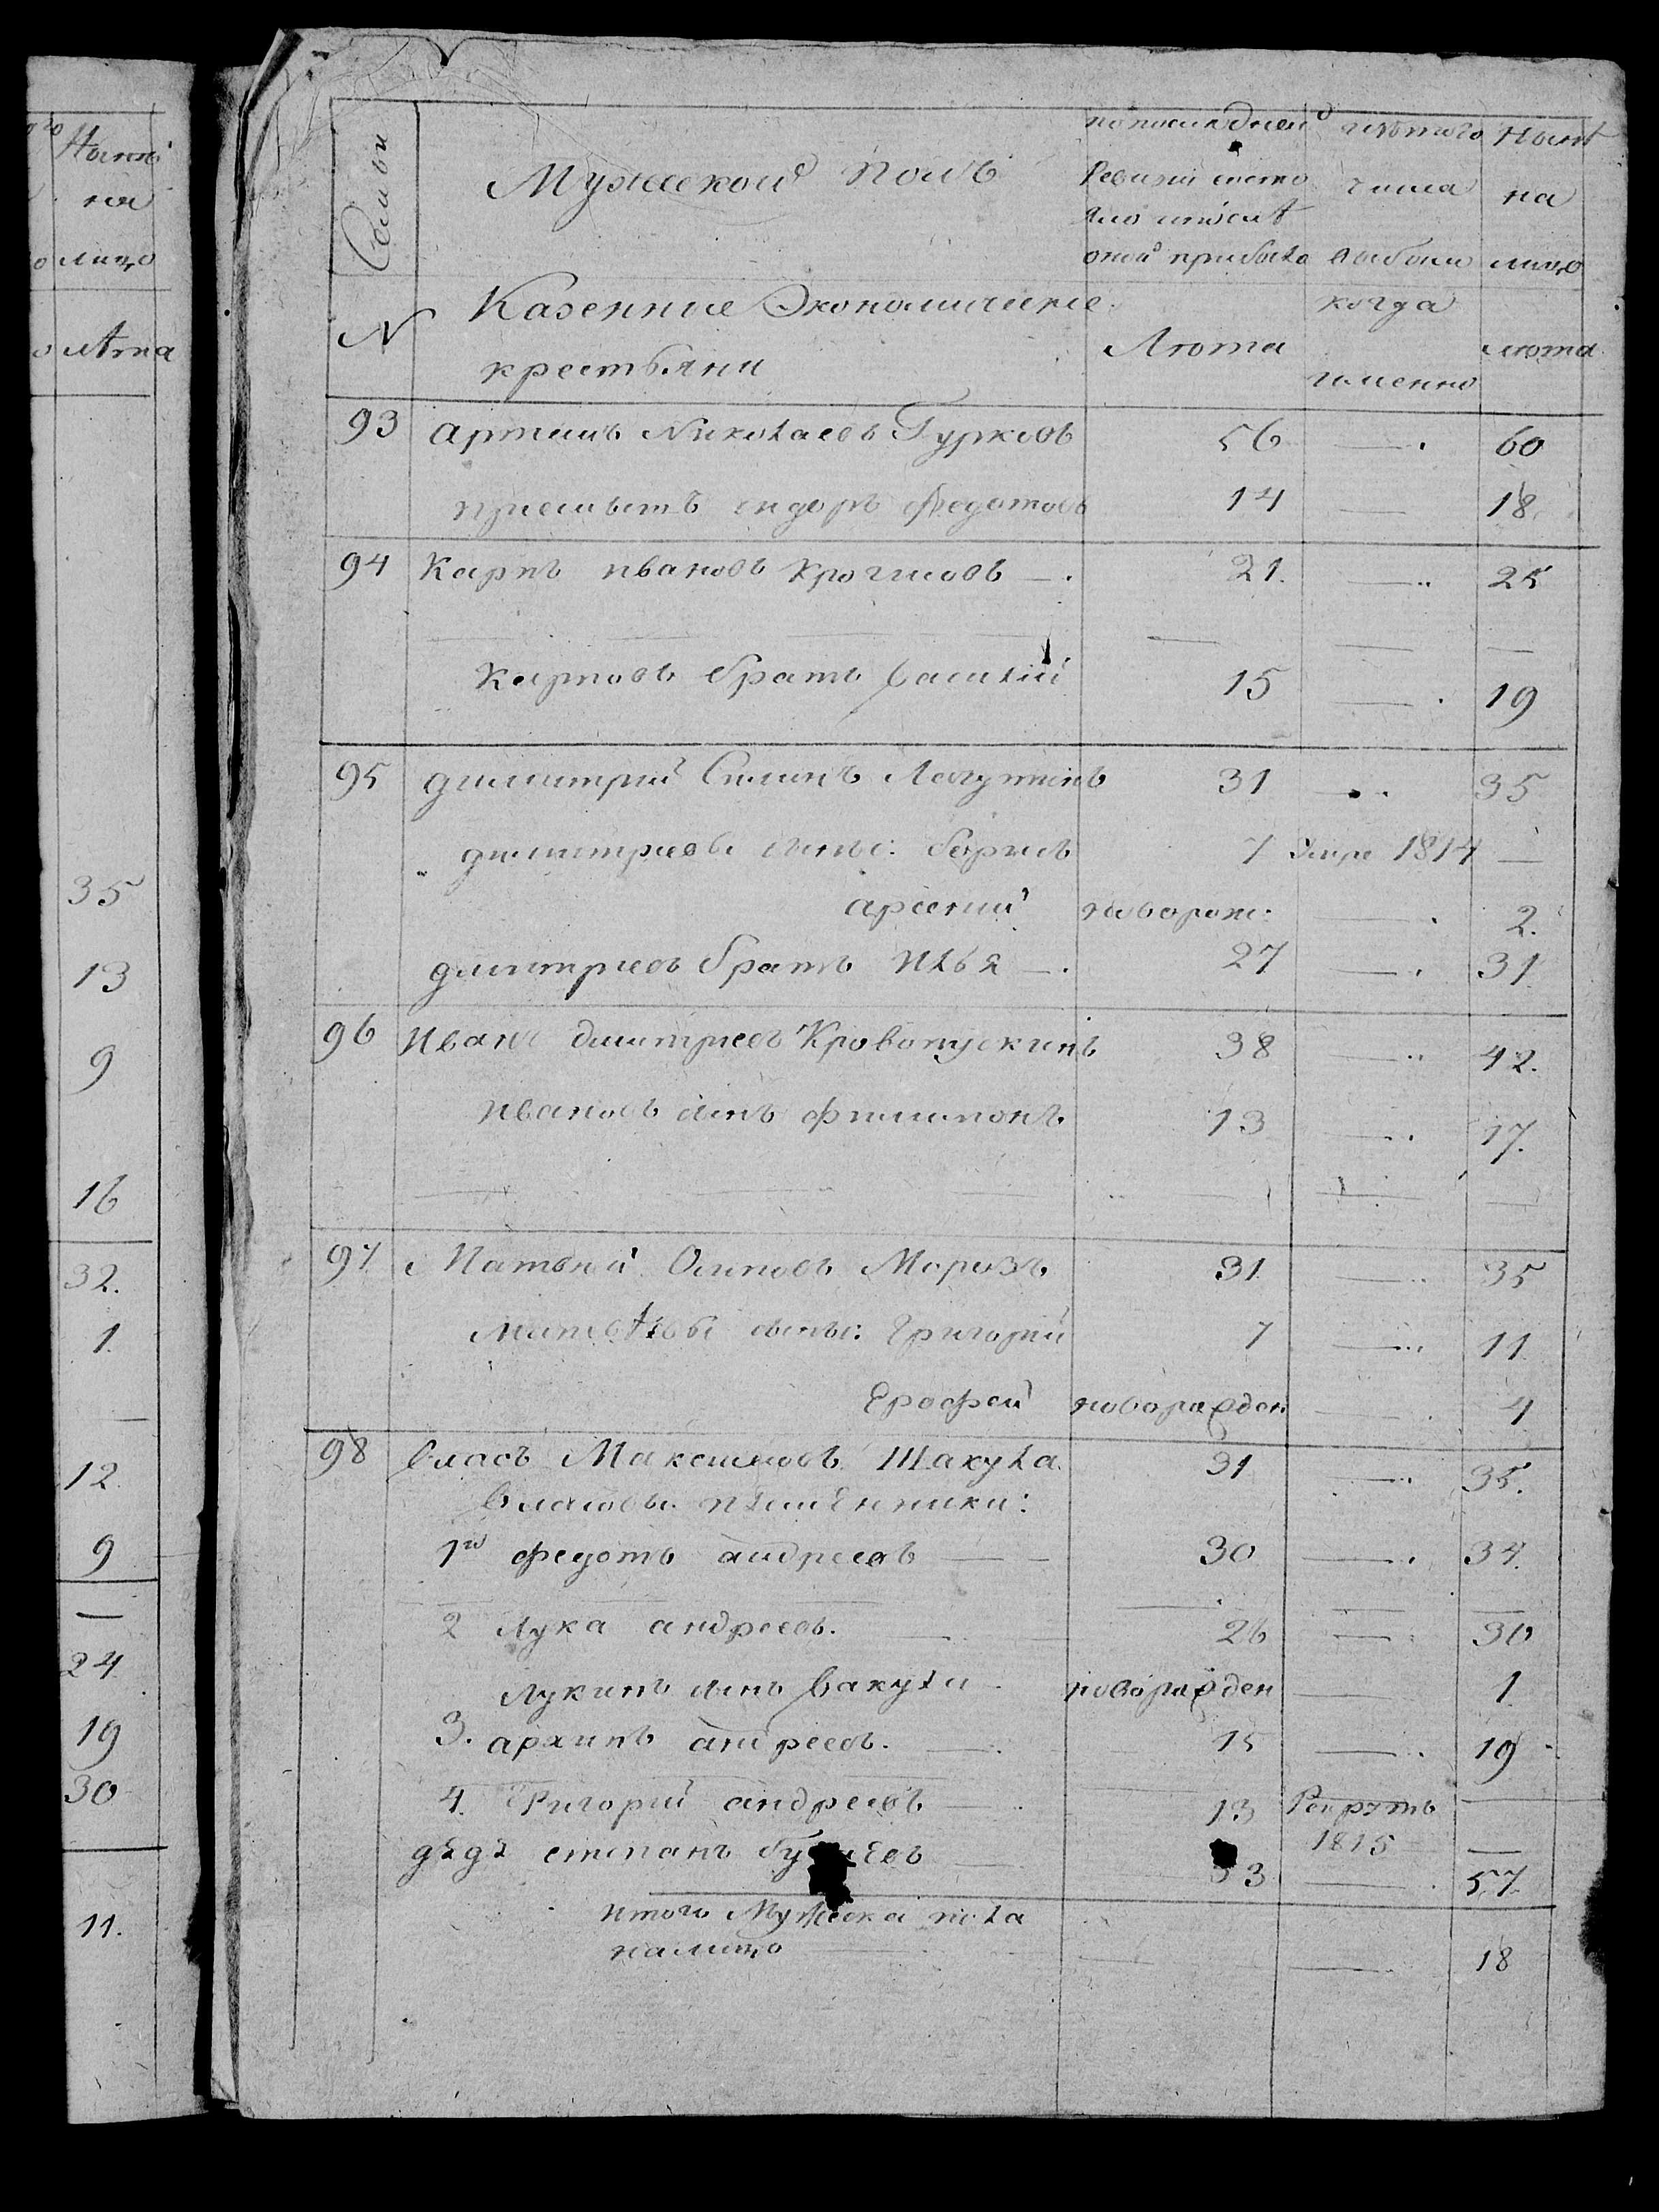 Нынѣ
на
лицо
лѣта
35
13
9
16
32.
1
12
9
24
19
30
11.
Семьи
Мужеской полъ
по последней
Ревизіи состо
яло и послѣ
оной прибыло
исъ того
числа
выбыли
Нынѣ
на
лицо
N
Казенные Экономические
крестьяни
Лѣта
когда
именно
лѣта
93 Артемъ Николаевъ Гурковъ 56 60
приемышъ Федотовъ 14 18
94 Карпъ ивановъ 21. 25
Карповъ братъ василій 15 19
95 димитрий Силинъ Лагутинъ 31 35
димитриевы сыны: борисъ 7 Умре 1814
арсений новорож: 2.
дмитриевъ братъ илья 27 31
96 Иванъ дмитриевъ Кровопускинъ 38 42.
ивановъ сынъ филимонъ 13 17.
97 Матвей Осиповъ Морозъ 31 35
Матвѣевы сыны: Григорий 7 11
Ерофей новорожден 4
98 власъ Максимовъ Шакула 31 35.
власовы племенники:
1й федотъ андреевъ 30 34.
2 Лука андреевъ. 26 30
Лукинъ сынъ вакула новорожден 1
3. архипъ андреевъ. 15 19
4. Григорий андреевъ 13 Рекрутъ
1815
дядя степанъ 53 57
итого Мужеска пола
налицо 18